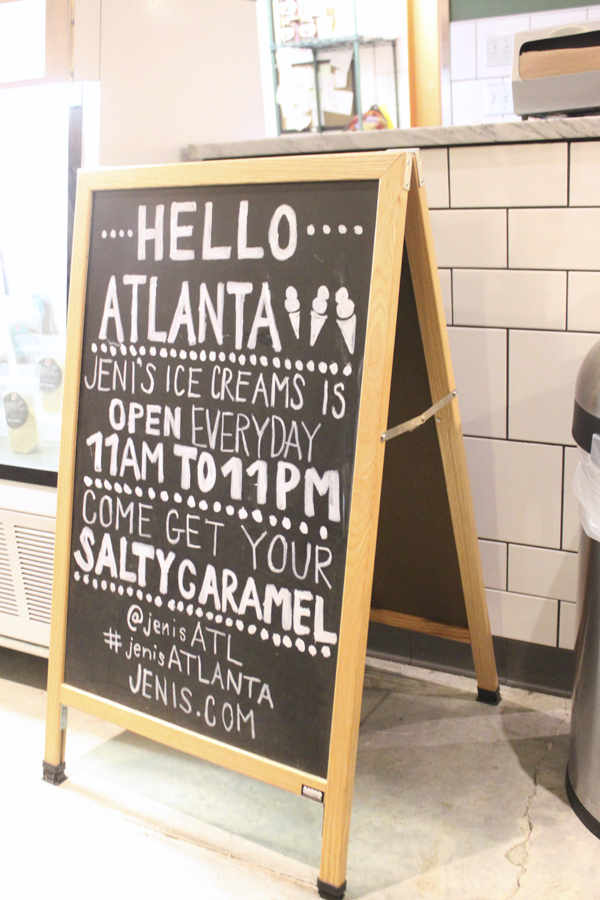 HELLO
ATLANTA
JENI'S ICE CREAMS IS
OPEN EVERYDAY
11AM TO 11PM
COME GET YOUR
SALTY CARAMEL
@jenisATL
#jenisATLANTA
JENIS.COM